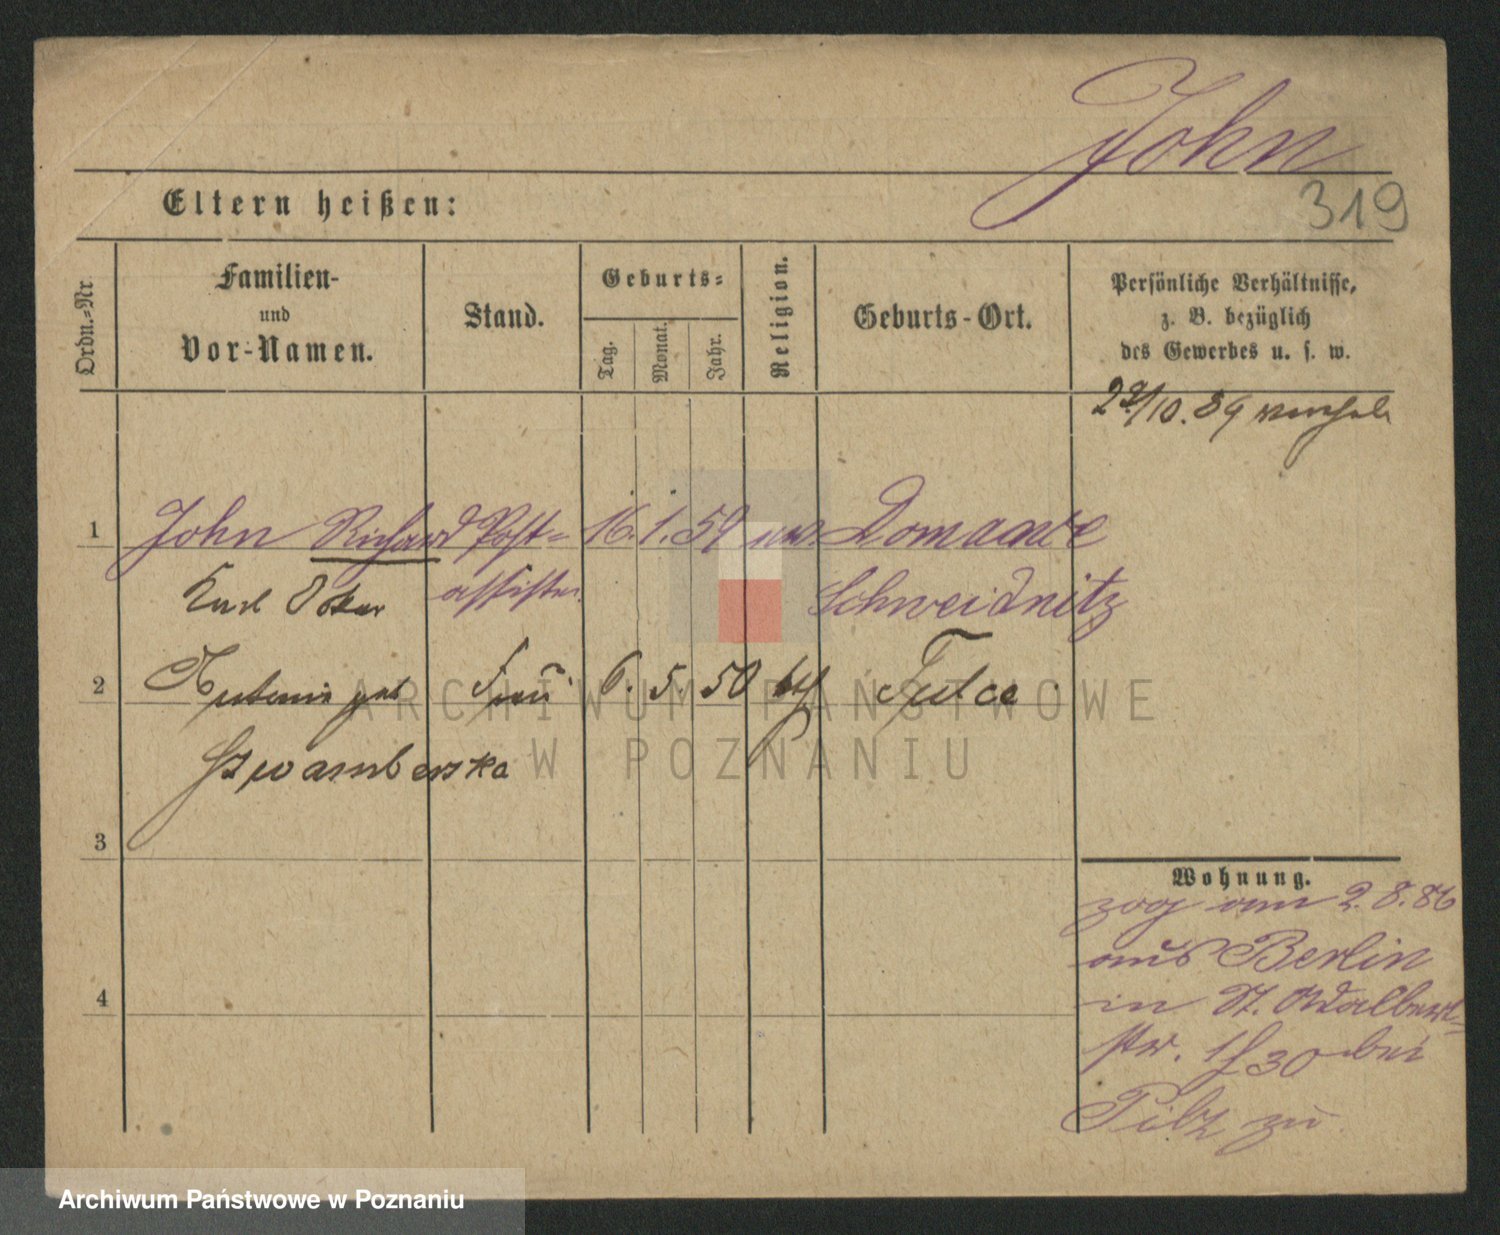 John
319
Eltern heißen:
Ordn.-Nr.
Familien-
und
Vor-Namen.
Stand.
Geburts-
Tag.
Monat.
Jahr.
Religion.
Geburts-Ort.
Persönliche Verhältnisse,
z. B. bezüglich
des Gewerbes u. s. w.
/10. 89
1 John Richard Post- 16. 1. 59 Domanze
Karl Oskar assisten Schweidnitz
2 geb Frau 6. 5. 50 Tulce
Szwamberska
3
4
Wohnung.
zog am 2. 8. 86
aus Berlin
in St. Adalbert-
str. 1 30 bei
Pilz zu
ARCHIWUM PAŃSTWOWE
W POZNANIU
Archiwum Państwowe w Poznaniu